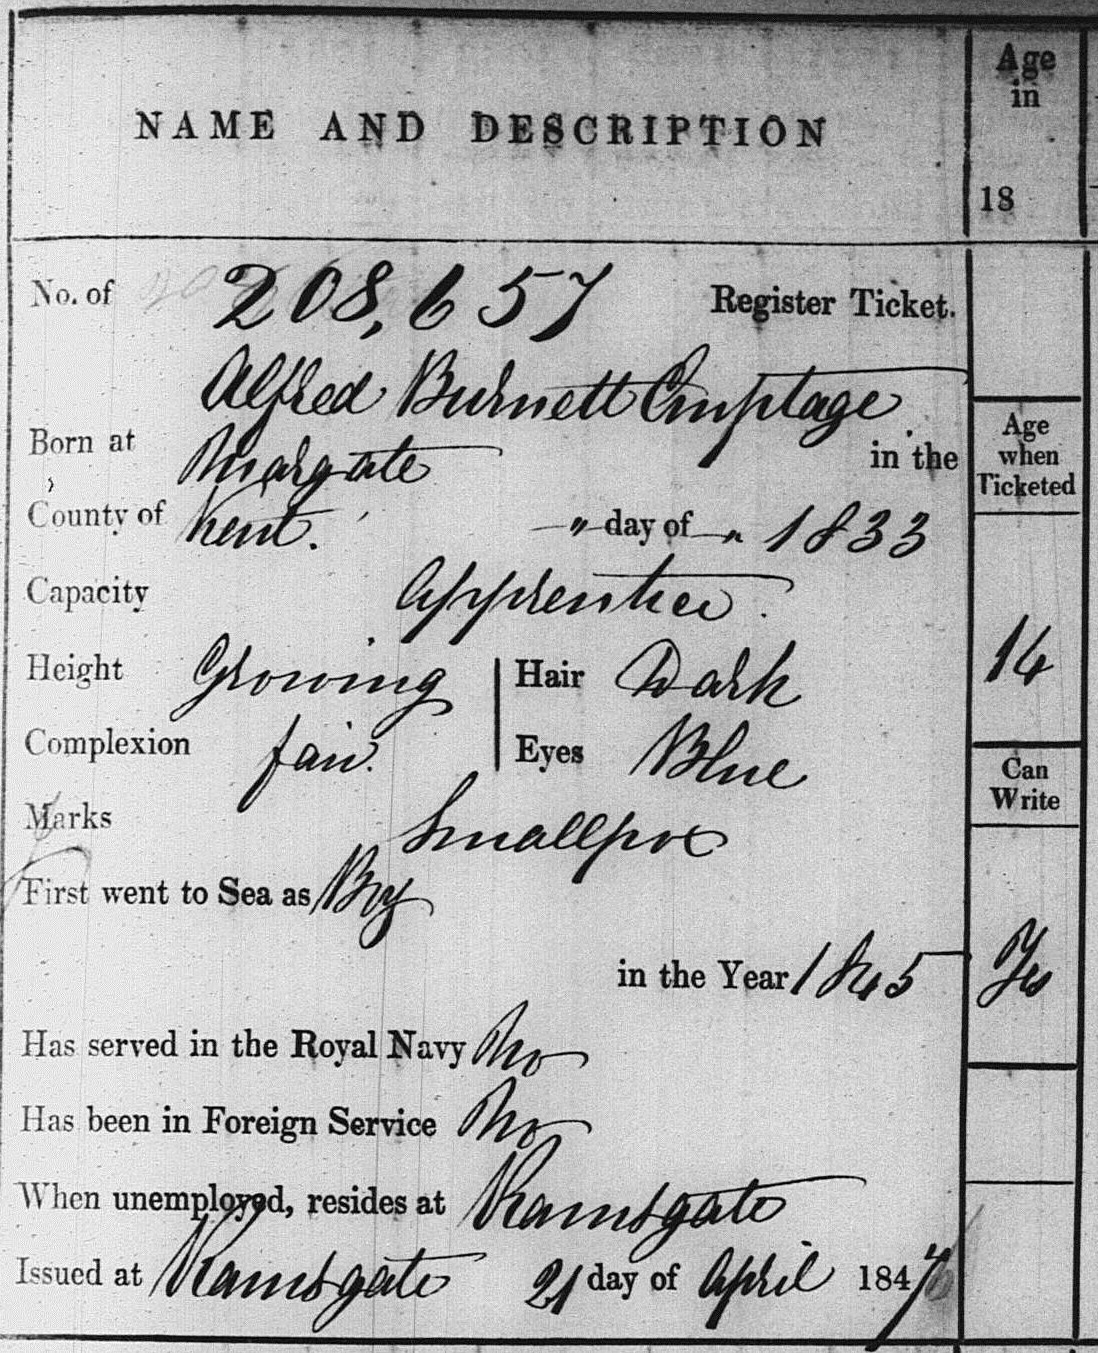 NAME AND DESCRIPTION
Age
in
18
No. of 208,657 Register Ticket.
Alfred Burnett Emptage
Born at Margate in the
County of Kent. " day of " 1833
Capacity Apprentice.
Height Growing Hair Dark
Complexion fair. Eyes Blue
Marks Smallpox
First went to Sea as Boy
in the Year 1845
Has served in the Royal Navy No
Has been in Foreign Service No
When unemployed, resides at Ramsgate
Issued at Ramsgate 21 day of April 1847
Age
when
Ticketed
14
Can
Write
Yes